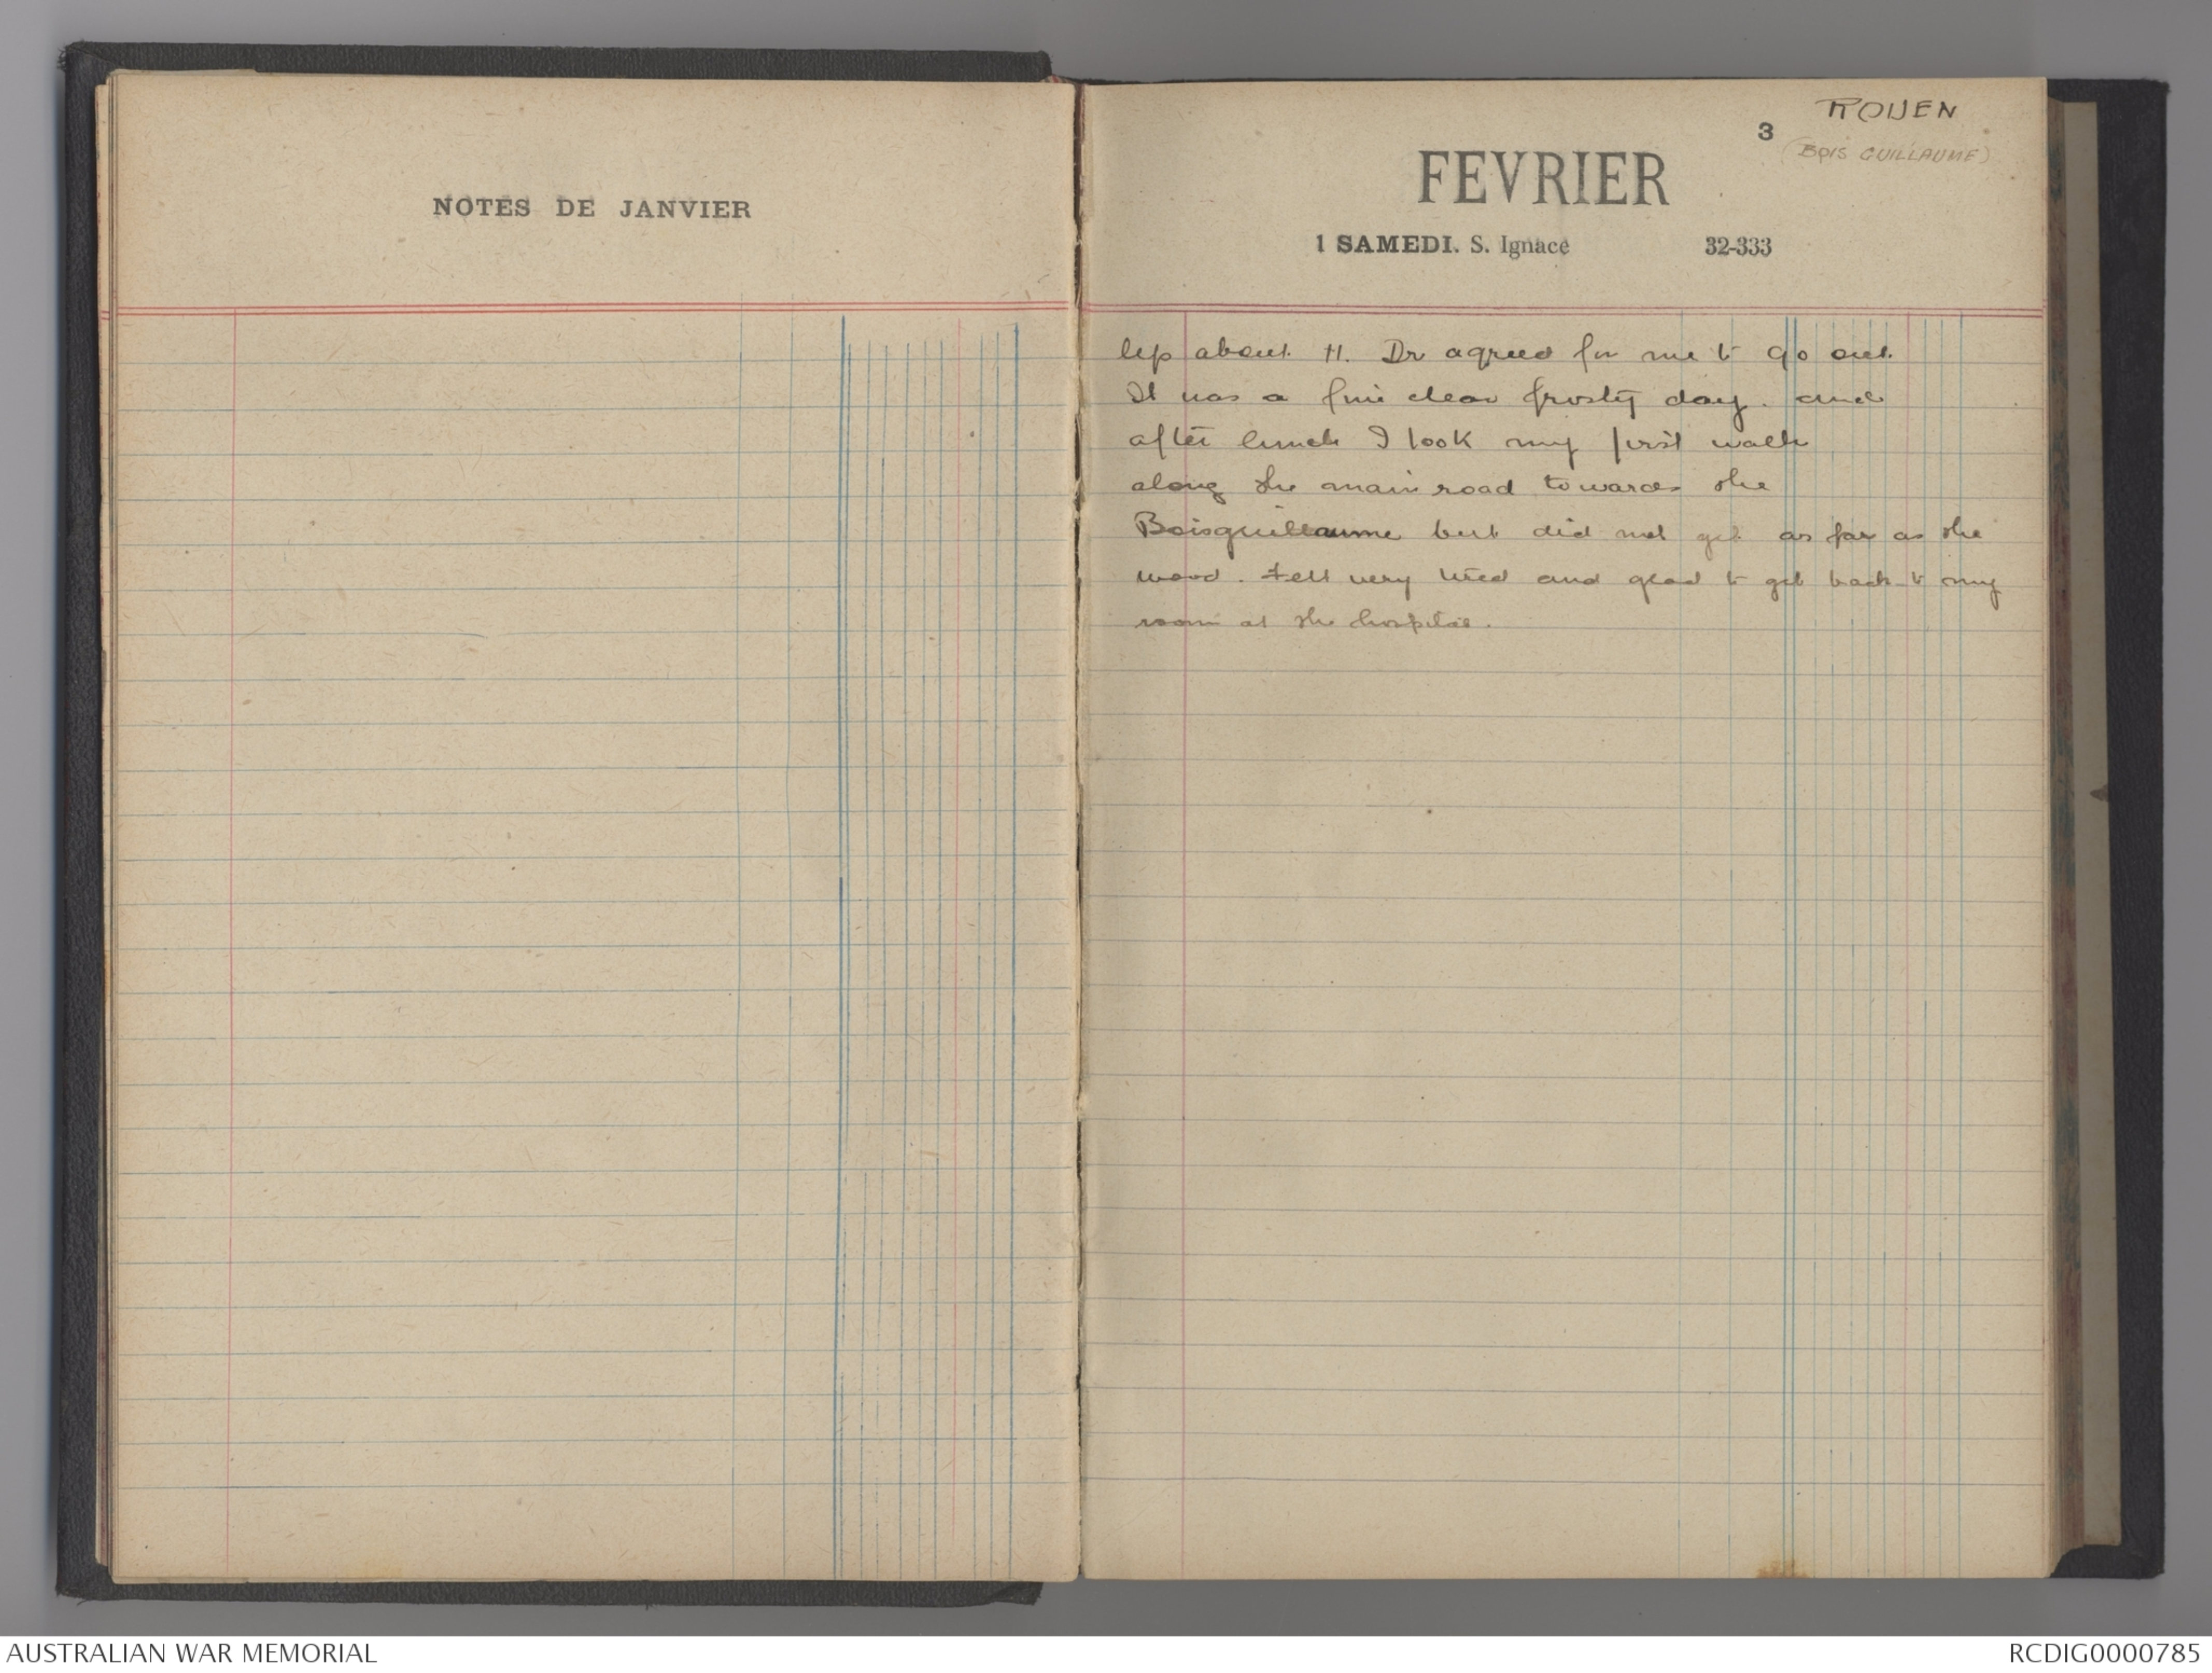 NOTES DE JANVIER
ROUEN
3
(BOIS GUILLAUME)
FEVRIER
1 SAMEDI. S. Ignace 32-333
Up about 11. Dr agreed for me to go out.
It was a fine clear frosty day. and
after lunch I took my first walk
along the main road towards the
Boisguillaume but did not get as far as the
wood. Felt very tired and glad to get back to my
room at the hospital.
AUSTRALIAN WAR MEMORIAL
RCDIG0000785